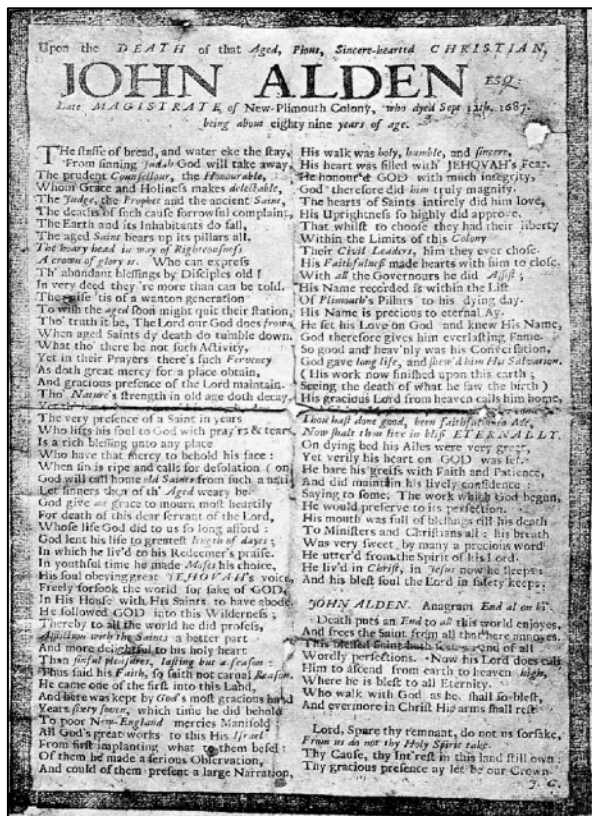 Upon the DEATH of that Aged, Pious, Sincere-hearted CHRISTIAN,
JOHN ALDEN ESQ:
Late MAGISTRATE of New-Plimouth Colony, who dyed Sept 12th. 1687.
being about eighty nine years of age.
THe staffe of bread, and water eke the stay,
From sinning Judah God will take away,
The prudent Counsellour, the Honourable,
Whom Grace and Holiness makes delectable,
The Judge, the Prophet and the ancient Saint,
The deaths of such cause sorrowful complaint,
The Earth and its Inhabitants do fall,
The aged Saint bears up its pillars all.
The hoary head in way of Righteousness
A crown of glory is. Who can express
Th' abundant blessings by Disciples old!
In very deed they're more than can be told.
The 'tis of a wanton generation
To wish the aged soon might quit their station,
Tho' truth it be, The Lord our God does frown
When aged Saints dy death do tumble down.
What tho' there be not such Activity,
Yet in their Prayers there's such Fervency
As doth great mercy for a place obtain,
And gracious presence of the Lord maintain.
Tho' Nature's strength in old age doth decay,
The very presence of a Saint in years
Who lifts his soul to God with pray'rs & tears,
Is a rich blessing unto any place
Who have that mercy to behold his face:
When sin is ripe and calls for desolation (on
God will call home old Saints from such a nati-
Let sinners then of th' Aged weary be
God give me grace to mourn most heartily
For death of this dear servant of the Lord,
Whose life God did to us so long afford:
God lent his life to greatest length of dayes;
In which he liv'd to his Redeemer's praise.
In youthful time he made Moses his choice,
His soul obeying great JEHOVAH's voice,
Freely forsook the world for sake of GOD,
In His House with His Saints to have abode.
He followed GOD into this Wilderness;
Thereby to all the world he did profess,
Affliction with the Saints a better part
And more delightful to his holy heart
Than sinful pleasures, lasting but a season:
Thus said his Faith, so saith not carnal Reason.
He came one of the first into this Land,
And here was kept by God's most gracious hand
Years sixty seven, which time he did behold
To poor New-England mercies Manifold:
All God's great works to this His Israel
From first implanting what to them befel:
Of them he made a serious Observation,
And could of them present a large Narration,
His walk was holy, humble, and sincere,
His heart was filled with JEHOVAH's Fear.
He honour'd GOD with much integrity,
God therefore did him truly magnify.
The hearts of Saints intirely did him love,
His Uprightness so highly did approve,
That whilst to choose they had their liberty
Within the Limits of this Colony
Their Civil Leaders, him they ever chose.
His Faithfulness made hearts with him to close,
With all the Governours he did Assist;
His Name recorded is within the List
Of Plimouth's Pillars to his dying day.
His Name is precious to eternal Ay.
He set his Love on God and knew His Name,
God therefore gives him everlasting Fame.
So good and heav'nly was his Conversation,
God gave long life, and shew'd him His Salvation.
(His work now finished upon this earth;
Seeing the death of what he saw the birth)
His gracious Lord from heaven calls him home,
Thou hast done good, been faithful unto Me,
Now shalt thou live in bliss ETERNALLY.
On dying bed his Ailes were very great,
Yet verily his heart on GOD was set.
He bare his greifs with Faith and Patience,
And did maintain his lively confidence:
Saying to some, The work which God begun,
He would preserve to its perfection.
His mouth was full of blessings till his death
To Ministers and Christians all: his breath
Was very sweet by many a precious word
He utter'd from the Spirit of his Lord.
He liv'd in Christ, in Jesus now he sleeps:
And his blest soul the Lord in safety keeps.
JOHN ALDEN. Anagram End al on hi'.
Death puts an End to all this world enjoyes,
And frees the Saint from all that here annoyes.
This blessed Saint hath seen End of all
Wordly perfections. Now his Lord does call
Him to ascend from earth to heaven high,
Where he is blest to all Eternity.
Who walk with God as he, shall so blest,
And evermore in Christ His arms shall rest
Lord, Spare thy remnant, do not us forsake,
From us do not thy Holy Spirit take.
Thy Cause, thy Int'rest in this land still own:
Thy gracious presence ay let be our Crown.
J. C.